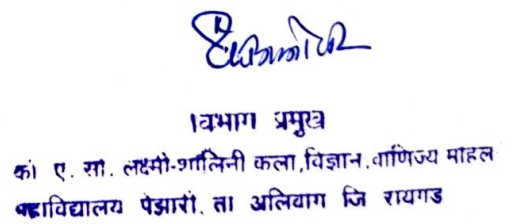 विभाग प्रमुख
को ए. सो. लक्ष्मी-शालिनी कला,विज्ञान,वाणिज्य महिला
महाविद्यालय पेझारी. ता अलिबाग जि रायगड